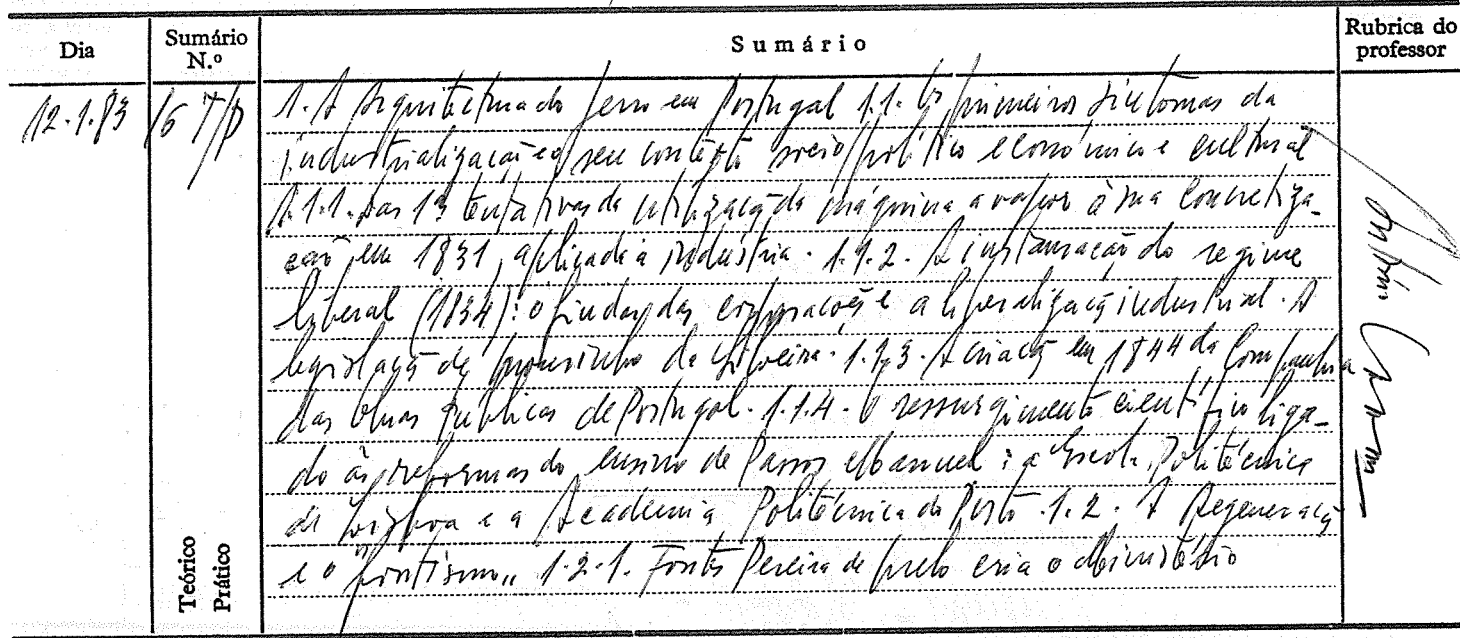 Dia
Sumário N.º
Sumário
Rubrica do professor
12.1.83
16 T/P
1. A Arquitectura do ferro em Portugal 1.1. Os primeiros sintomas da
industrialização e o seu contexto socio/político economico e cultural
1.1.1. Das 1as tentativas de utilização da máquina a vapor à sua concretiza-
ção em 1831, aplicada à indústria. 1.1.2. A instauração do regime
liberal (1834): o findar das corporações e a liberalização industrial. A
legislação de Mousinho da Silveira. 1.1.3. A criação em 1844 da Companhia
das Obras Publicas de Portugal. 1.1.4. O ressurgimento científico liga-
do às reformas do ensino de Passos Manuel: a Escola Politécnica
de Lisboa e a Academia Politécnica do Porto. 1.2. A Regeneração
e o "fontismo" 1.2.1. Fontes Pereira de Melo cria o Ministério
Teórico
Prático